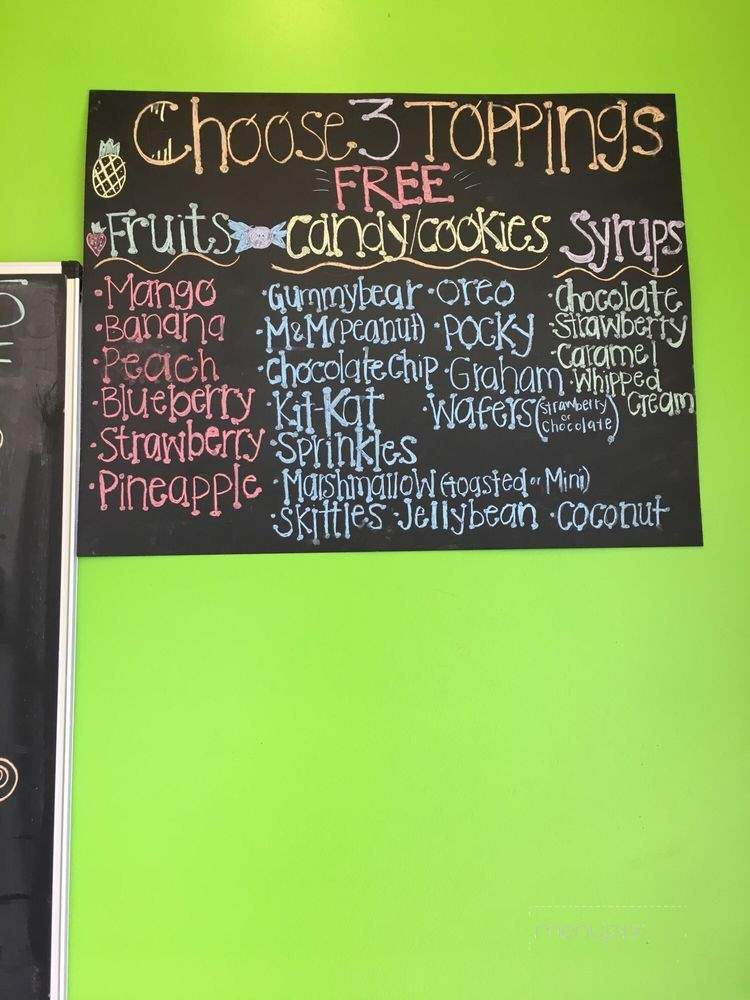 Choose 3 Toppings
FREE
Fruits
Mango
Banana
Peach
Blueberry
Strawberry
Pineapple
Candy/Cookies
Gummybear • Oreo
M&M (Peanut) • Pocky
Chocolate Chip • Graham
Kit-Kat • Wafers (Strawberry or Chocolate)
Sprinkles
Marshmallow (toasted or Mini)
Skittles • Jellybean • Coconut
Syrups
Chocolate
Strawberry
Caramel
Whipped
Cream